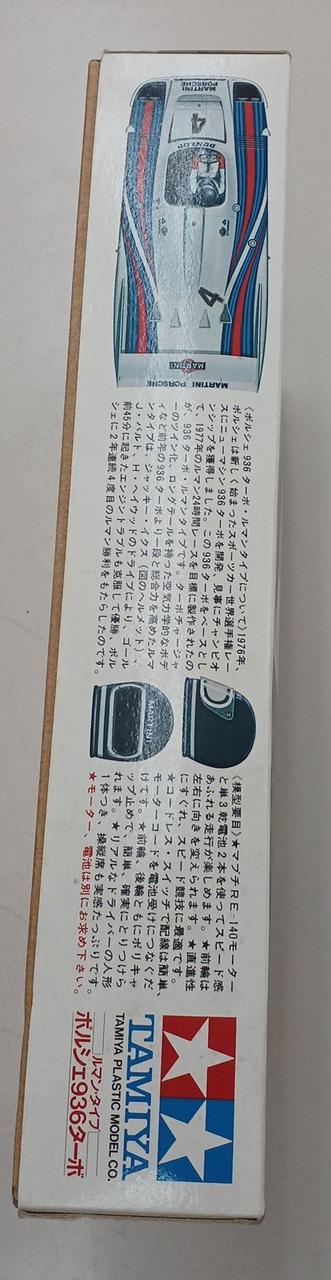 MARTINI
PORSCHE
4
DUNLOP
4
MARTINI
MARTINI PORSCHE
《ポルシェ936ターボ・ルマンタイプについて》1976年、
ポルシェは新しく始まったスポーツカー世界選手権レー
スにニューマシン936ターボを開発、見事にチャンピオ
ンシップを獲得しました。この936ターボをベースとし
て、1977年のルマン24時間レースを目標に製作されたの
が、936ターボ・ルマンタイプです。ターボチャージャ
ーのツイン化、ロングテールを持つ空気力学的なボデ
ィなど前年の936ターボより一段と総合力を高めたルマ
ンタイプは、ジャッキー・イクス（図のヘルメット）、
J・バルト、H・ヘイウッドのドライブにより、ゴール
前45分に起きたエンジントラブルも克服して優勝、ポル
シェに2年連続4度目のルマン勝利をもたらしたのです。
MARTINI
《模型要目》★マブチRE-140モーター
と単3乾電池2本を使ってスピード感
あふれる走行が楽しめます。★前輪は
左右に向きを変えられます。★直進性
にすぐれ、スピード競技に最適です。
★コードレス・スイッチで配線は簡単、
モーターコードを電池受けにつなぐだ
けです。★前輪、後輪ともにポリキャ
ップ止めで、簡単、確実にとりつけら
れます。★リアルなドライバーの人形
1体つき、操縦席も実感たっぷりです。
★モーター、電池は別にお求め下さい。
TAMIYA
TAMIYA PLASTIC MODEL CO.
ルマンタイプ
ポルシェ936ターボ